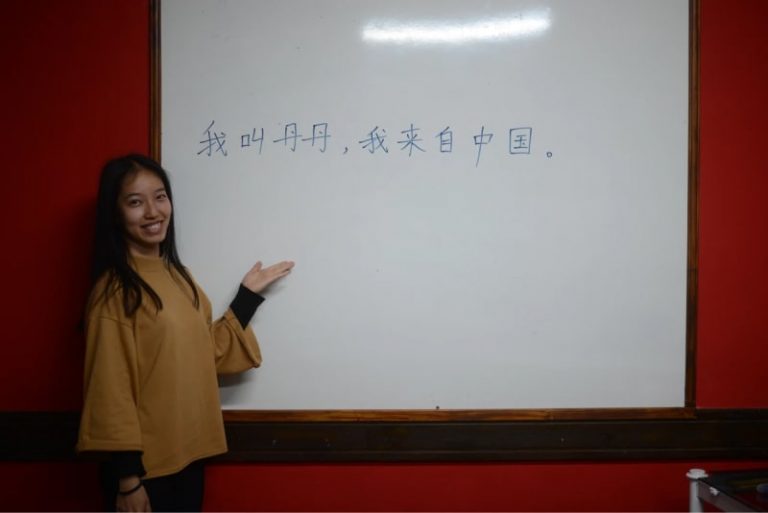 我叫丹丹，我来自中国。